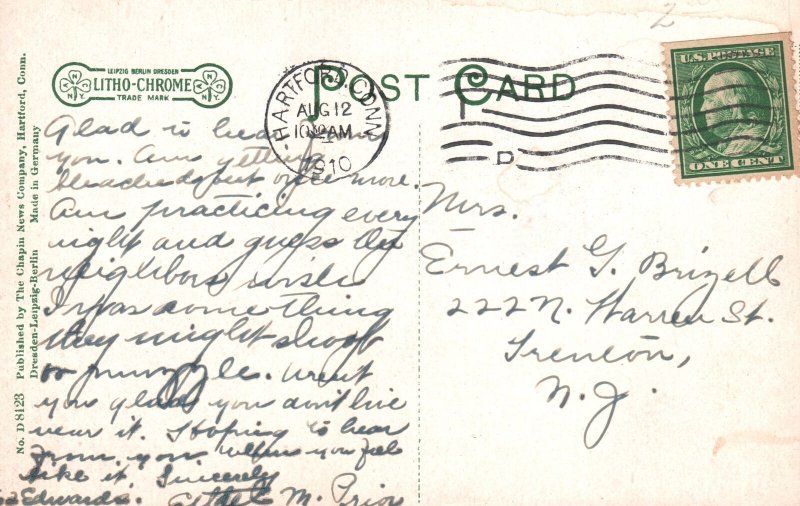 No. D 8123 Published by The Chapin News Company, Hartford, Conn.
Dresden-Leipzig-Berlin Made in Germany
LEIPZIG BERLIN DRESDEN
LITHO-CHROME
TRADE MARK
POST CARD
HARTFORD, CONN.
AUG 12
10 AM
1910
D
2
U.S. POSTAGE
ONE CENT
Glad to hear from
you. Am getting
bleached out once more.
Am practicing every
night and guess the
neighbors wish
I was something
they might shoot
or muzzle. Aren't
you glad you don't live
near it. Hoping to hear
from you when you feel
like it. Sincerely
Edwards. Ethel M. Prior
Mrs.
Ernest G. Brizell
222 N. Warren St.
Trenton,
N. J.